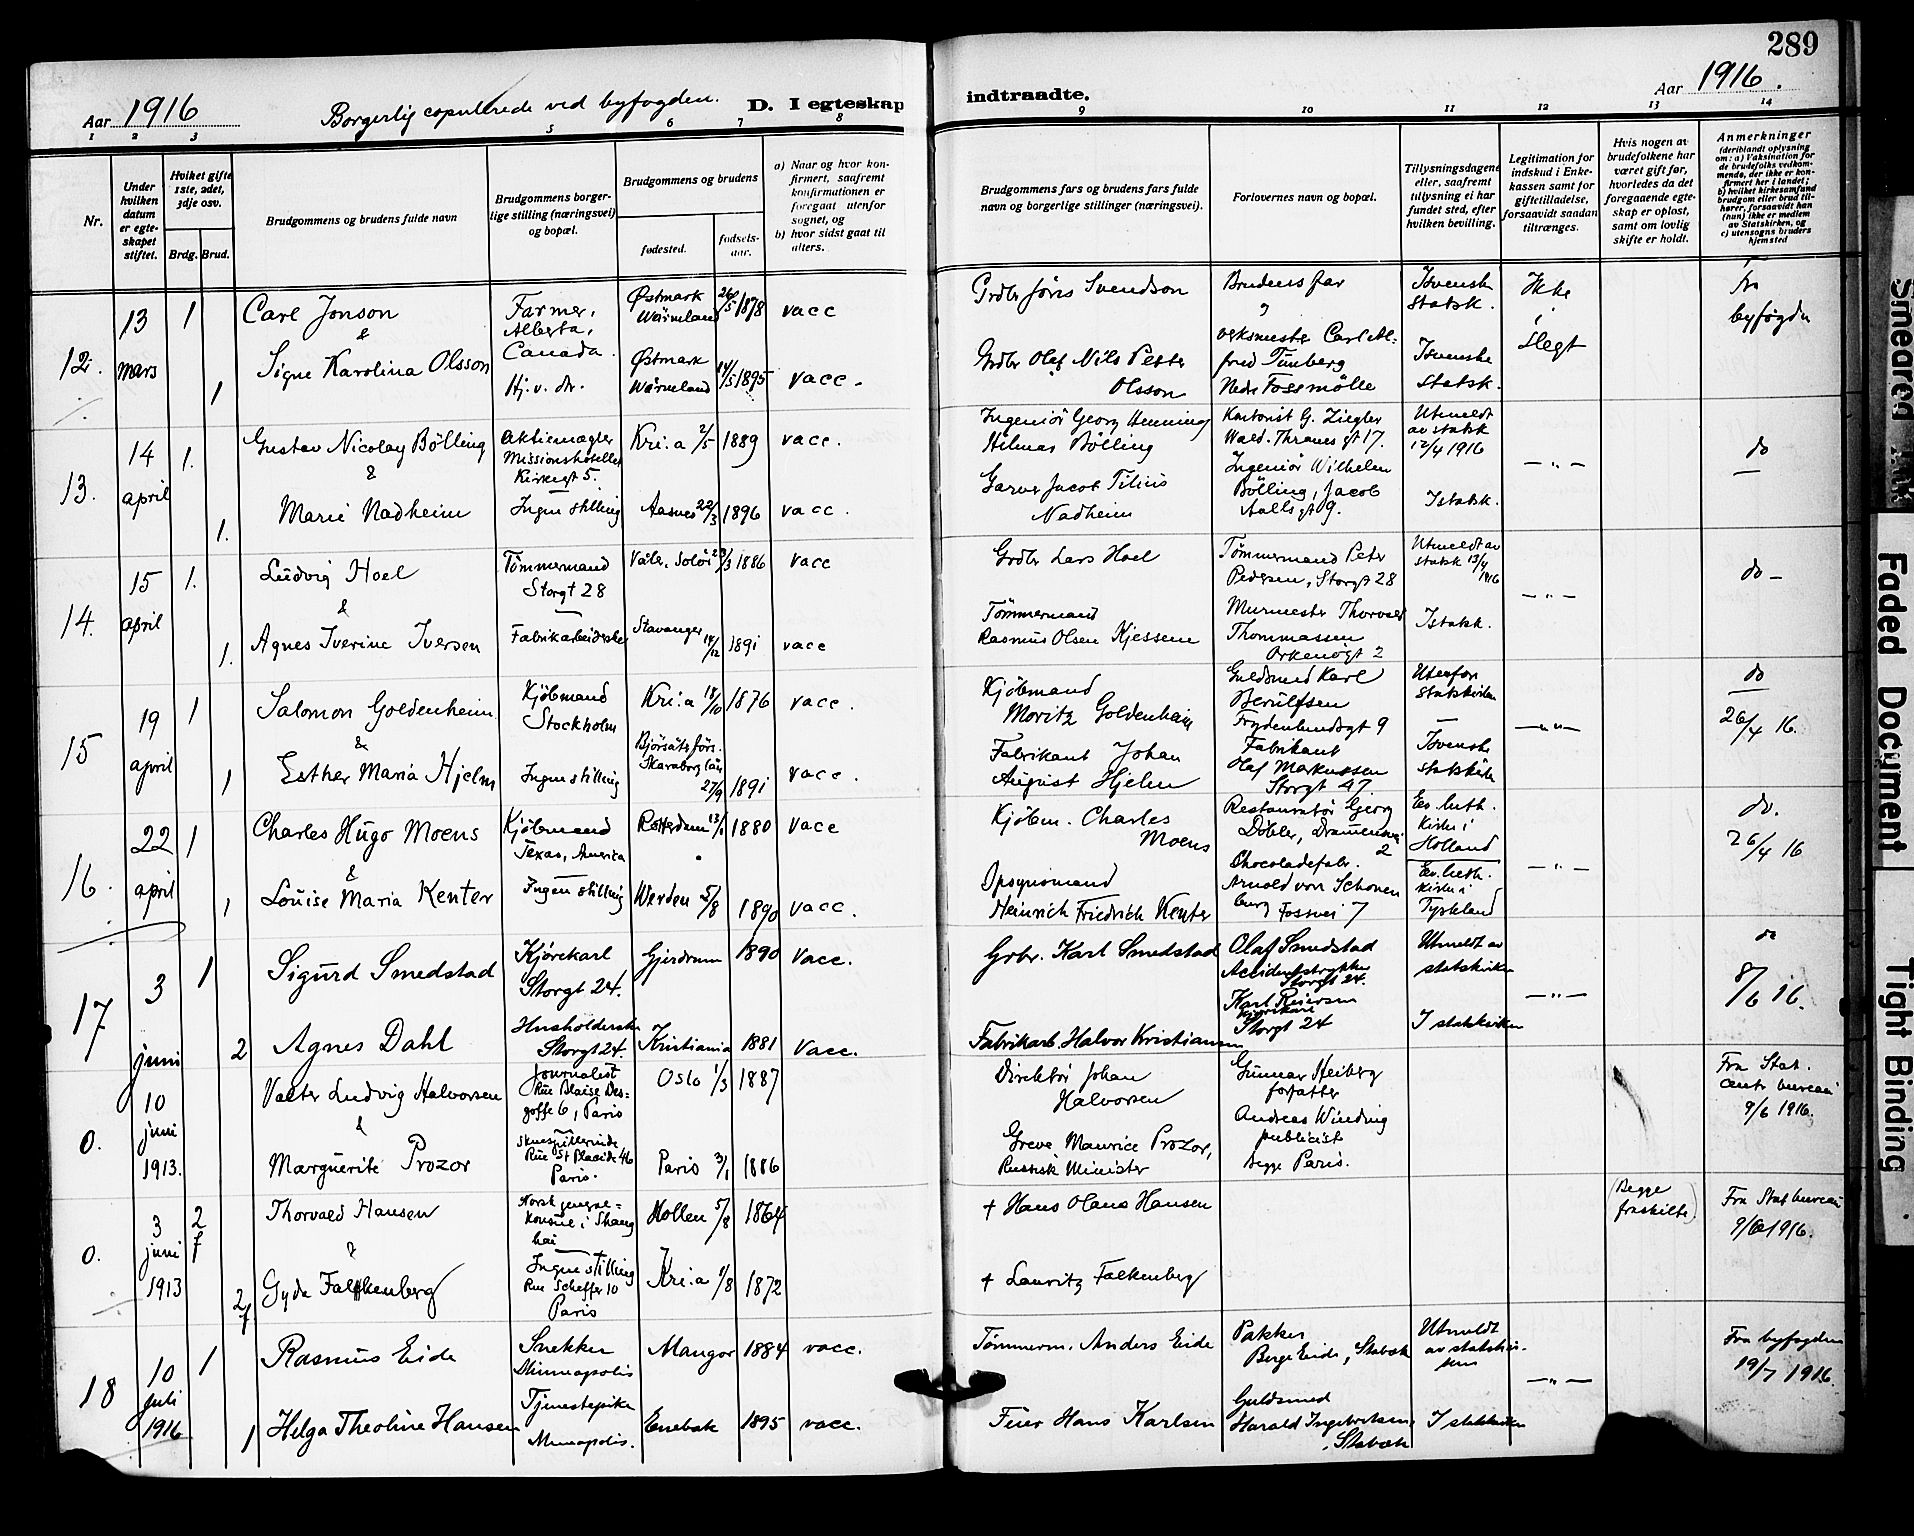 289
Aar 1916
Borgerlig copulerede ved byfogden.
D. I egteskap
indtraadte.
Aar 1916.
1 2 3 5 6 7 8 9 10 11 12 13 14
Nr.
Under hvilken datum er egteskapet stiftet.
Hvilket gifte 1ste, 2det, 3dje osv.
Brdg. Brud.
Brudgommens og brudens fulde navn
Brudgommens borgerlige stilling (næringsvei) og bopæl.
Brudgommens og brudens
fødested.
fødselsaar.
a) Naar og hvor konfirmert, saafremt konfirmationen er foregaat utenfor sognet, og
b) hvor sidst gaat til alters.
Brudgommens fars og brudens fars fulde navn og borgerlige stillinger (næringsvei).
Forlovernes navn og bopæl.
Tillysningsdagene eller, saafremt tillysning ei har fundet sted, efter hvilken bevilling.
Legitimation for indskud i Enkekassen samt for giftetilladelse, forsaavidt saadan tiltrænges.
Hvis nogen av brudefolkene har været gift før, hvorledes da det foregaaende egteskap er oplost, samt om lovlig skifte er holdt.
Anmerkninger
(deriblandt oplysning om: a) Vaksination for de brudefolks vedkommende, der ikke er konfirmert her i landet; b) hvilket kirkesamfund brudgom eller brud tilhører, forsaavidt han (hun) ikke er medlem av Statskirken, og c) utensogns bruders hjemsted
12. 13 mars 1 Carl Jonson Farmer, Alberta, Canada. Østmark Wärmeland 26/5 1878 vacc Grdbr Jöns Svendson Brudens far I svenske statsk. Ikke slegt Fra byfogden
&
1 Signe Karolina Olsson Hj. v. do. Østmark Wärmeland 14/5 1895 vacc. Grdbr Olaf Nils Petter Olsson verksmester Carl Alfred Tunberg Nedre Fossmölle I svenske statsk.
13. 14 april 1. Gustav Nicolay Bölling Aktiemægler Missionshotellet Kirkegt 5. Kri.a 2/5 1889 vacc. Ingeniör Georg Henning Hilmar Bölling Kontorist G. Ziegler Wald. Thranes gt 17. Utmeldt av statsk 12/4 1916 — „ — do
&
1. Marie Nadheim Ingen stilling Aasnes 22/3 1896 vacc. Garver Jacob Tilius Nadheim Ingeniör Wilhelm Bölling, Jacob Aalls gt 9. I statsk.
14. 15 april 1. Ludvig Hoel Tömmermand Storgt 28 Våler, Solör 23/3 1886 vacc Grdbr Lars Hoel Tømmermand Peter Pedersen, Storgt 28 Utmeldt av statsk 13/4 1916 — „ — do —
&
1. Agnes Iverine Iversen Fabrikarbeiderske Stavanger 14/12 1891 vacc Tömmermand Rasmus Olsen Kjessene Murmester Thorvald Thommassen Orkenögt 2 I statsk.
15 19 april 1 Salomon Goldenheim Kjöbmand Stockholm Kri.a 18/10 1876 vacc. Kjöbmand Moritz Goldenheim Guldsmed Karl Berulfsen Frydenlundsgt 9 Utenfor statskirken — „ — do 26/4 16.
&
1 Esther Maria Hjelm Ingen stilling Björsäts förs. Skaraborg län 27/9 1891 vacc. Fabrikant Johan August Hjelm Fabrikant Olaf Markussen Storgt 47. I svenske statskirke
16. 22 april 1 Charles Hugo Moens Kjöbmand Texas, America Rotterdam 13/1 1880 vacc Kjöbm. Charles Moens Restauratör Georg Döbler, Drammensvei 2 Ev. luth. kirke i Holland — „ — do. 26/4 16
&
1 Louise Maria Kenter Ingen stilling Werden 5/8 1890 vacc. Opsynsmand Heinrich Friedrich Kenter Chocoladefabr. Arnold von Schonenburg Fossvei 7 Ev. luth. kirke i Tyskland
17 3 juni 1 Sigurd Smedstad Kjörekarl Storgt 24. Gjerdrum 1890 Vacc. Gbr. Karl Smedstad Olaf Smedstad Accidentstrykker Storgt 24. Utmeldt av statskirken — „ — do 8/6 16.
2 Agnes Dahl Husholderske Storgt 24. Kristiania 1881 Vacc. Fabrikarb. Halvor Kristiansen Karl Reiersen kjørekarl Storgt 24 I statskirken
0. 10 juni 1913. Valter Ludvig Halvorsen Journalist Rue Blaise Desgoffe 6, Paris Oslo 1/3 1887 Direktör Johan Halvorsen Gunnar Heiberg forfatter Fra Stat. centr. bureau 9/6 1916.
&
Marguerite Prozor Skuespillerinde Rue St Placide 46 Paris. Paris 3/1 1886 Greve Maurice Prozor, Russisk Minister Andreas Winding publicist Begge Paris.
0. 3 juni 1913 2 f Thorvald Hansen Norsk generalkonsul i Shanghai Mollen 5/8 1864 † Hans Olaus Hansen (Begge fraskilte) Fra Stat bureau 9/6 1916.
&
2 f Gyda Falkenberg Ingen stilling Rue Scheffer 10 Paris Kri.a 1/8 1872 † Lauritz Falkenberg
18 10 juli 1916 1 Rasmus Eide Snekker Minneapolis Mangor 1884 vacc. Tömmerm. Anders Eide Pakker Berge Eide, Stabæk Utmeldt av statskirken — „ — Fra byfogden 19/7 1916.
1 Helga Theoline Hansen Tjenestepike Minneapolis. Enebak 1895 vacc. Feier Hans Karlsen Guldsmed Harald Ingebretsen, Stabæk I statskirken
Smeared Ink
Faded Document
Tight Binding